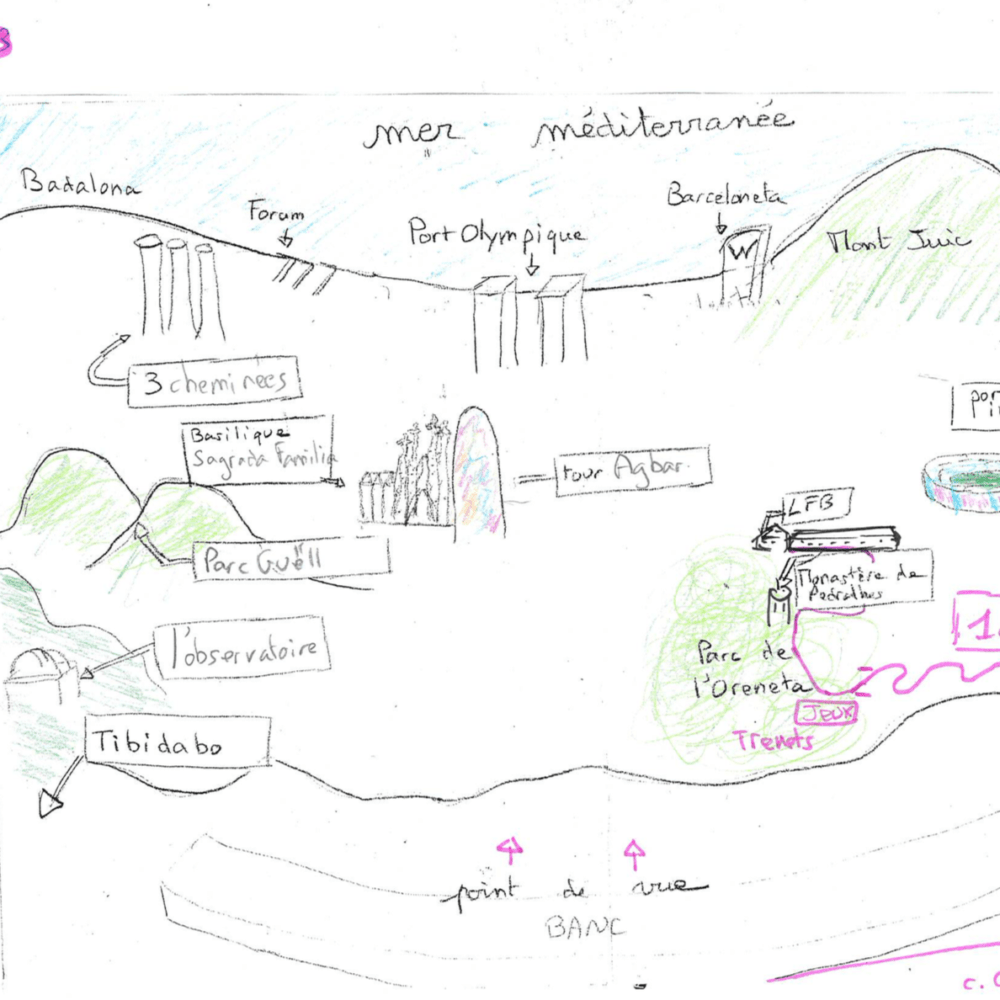 mer méditerranée
Badalona
Forum
Port Olympique
Barceloneta
W
Mont Juic
3 cheminées
Basilique
Sagrada Familia
tour Agbar
LFB
Parc Güell
Monastère de
Pedralbes
1
l'observatoire
Parc de
l'Oreneta
JEUX
Trenets
Tibidabo
point de vue
BANC
c.